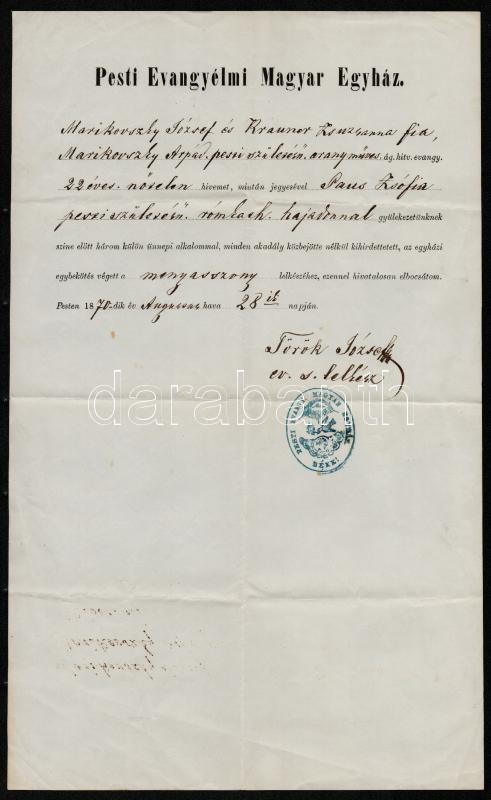 Pesti Evangyélmi Magyar Egyház.
Marikovszky József és Krauner Zsuzsanna fia,
Marikovszky Árpád. pesti születésű. aranyműves. ág. hitv. evangy.
22 éves. nőtelen hivemet, miután jegyesével Paus Zsófia
pesti születésű. róm. kath. hajadonnal gyülekezetünknek
szine előtt három külön ünnepi alkalommal, minden akadály közbejötte nélkül kihirdettetett, az egyházi
egybekötés végett a menyasszony lelkészéhez, ezennel hivatalosan elbocsátom.
Pesten 1870-dik év Augusztus hava 28 ik napján.
Török József
ev. s. lelkész
darabanth
PESTI EVANG. MAGYAR EGYHÁZ
BÉKE!
Marikovszky
Marikovszky